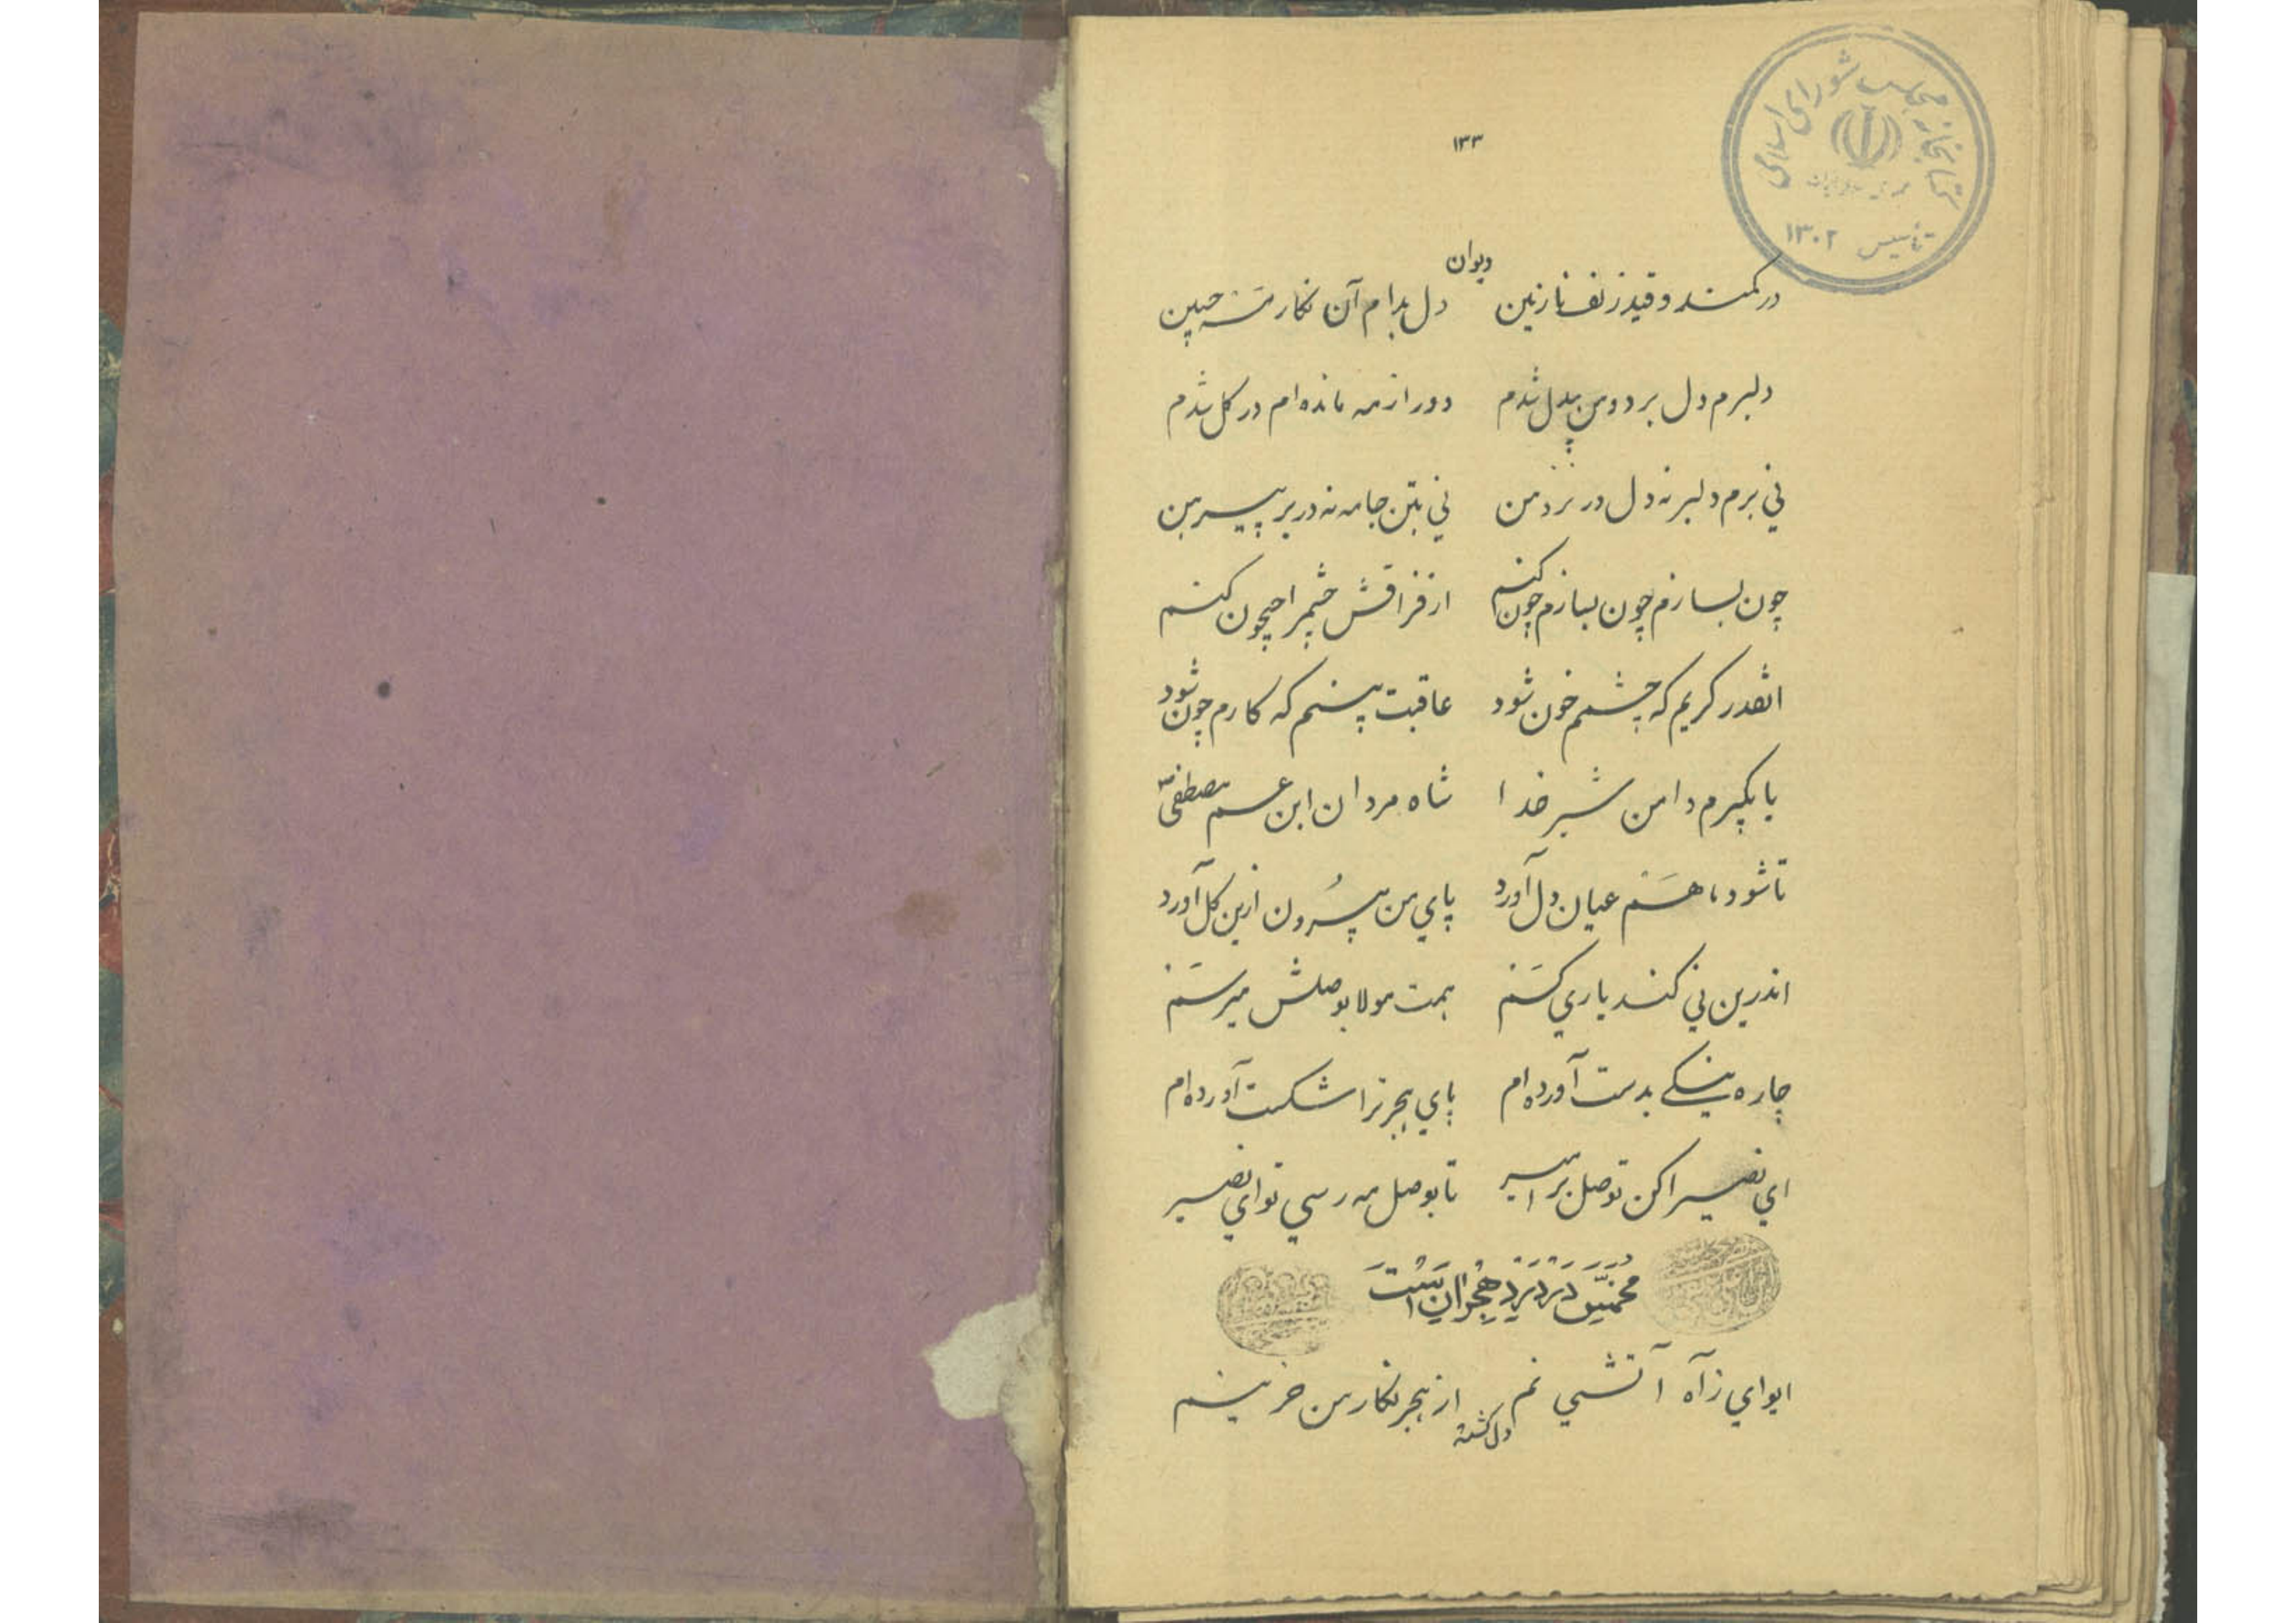 کتابخانه مجلس شورای اسلامی
جمهوری اسلامی ایران
تاسیس ۱۳۰۲
۱۳۳
دیوان
در کمند و قید زلف نازنین دل بدام آن نگار مه جبین
دلبرم دل برد و من بیدل شدم دور از مه مانده ام در گل شدم
ني برم دلبر نه دل در نزد من ني بتن جامه نه در بر پیرهن
چون بسازم چون بسازم چون کنم از فراقش چشم را جیحون کنم
انقدر گریم که چشمم خون شود عاقبت بینم که کارم چون شود
یا بگیرم دامن شیر خدا شاه مردان ابن عم مصطفی
تا شود ماهم عیان دل آورد پاي من بیرون ازین گل آورد
اندرین ني کند یاري کسم همت مولا بوصلش میرسم
چاره نیکی بدست آورده ام پاي هجر ترا شکست آورده ام
اي نصیرا کن توصل بر امیر تا بوصل مه رسي تو اي نصیر
در درد هجران است
ایواي ز آه آتشي غم از هجر نگار من حزینم
دل گشته